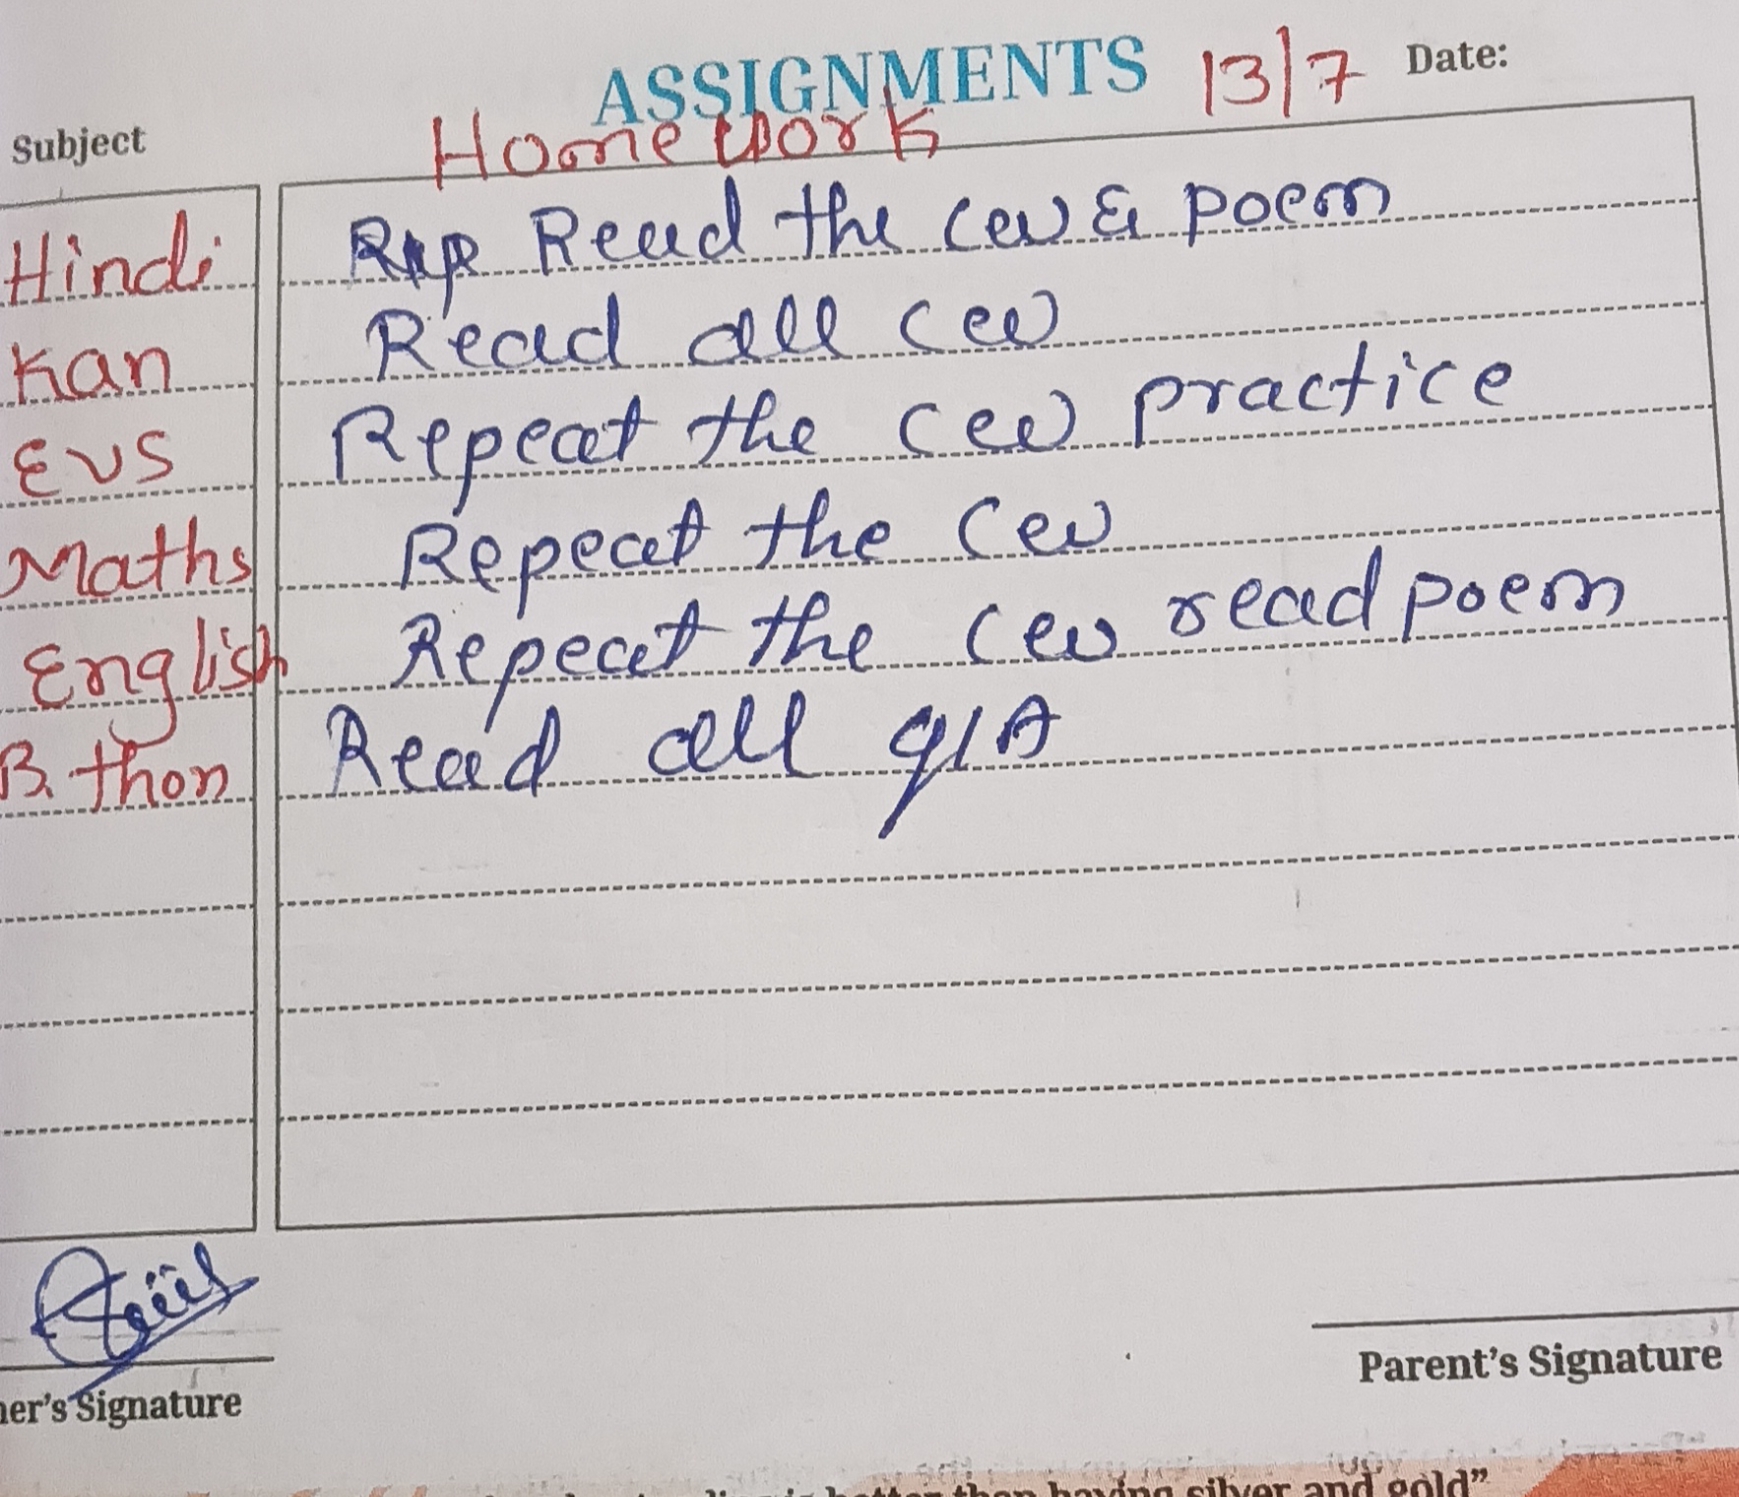 ASSIGNMENTS 13/7 Date:
Subject Homework
Hindi Read the cw & poem
Kan Read all cw
EVS Repeat the cw practice
Maths Repeat the cw
English Repeat the cw read poem
B.thon Read all q/A
her's Signature
Parent's Signature
better than having silver and gold”